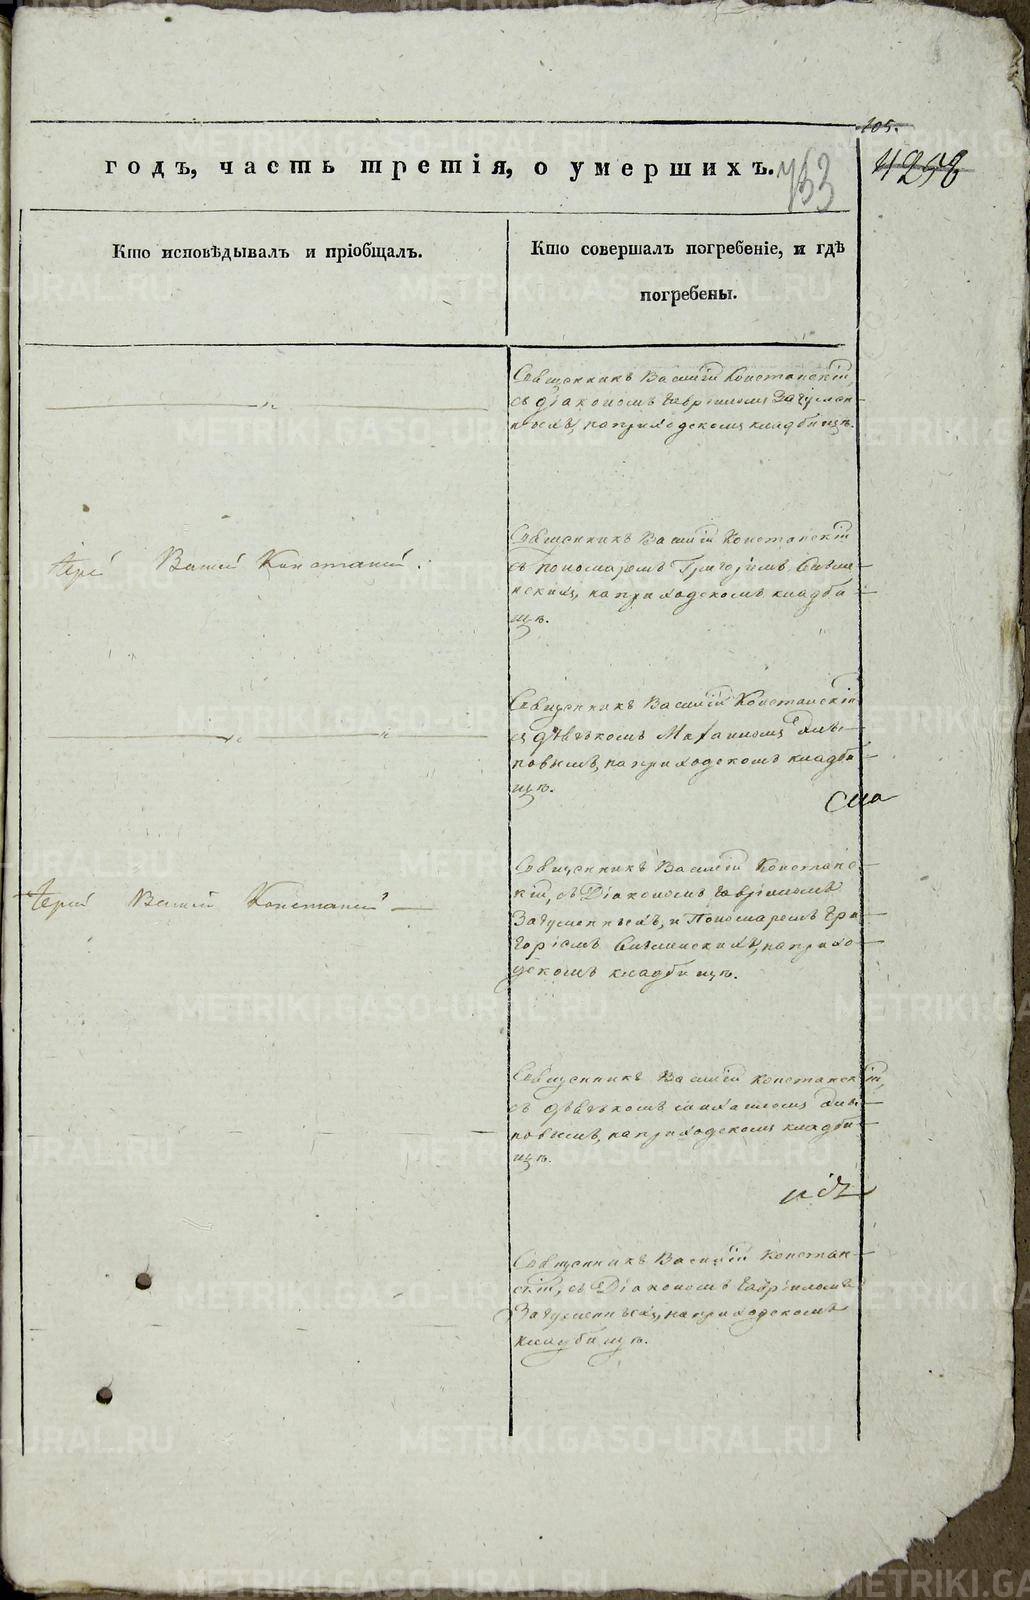 105.
годъ, часть третія, о умершихъ.
433
4298
Кто исповѣдывалъ и пріобщалъ.
Кто совершалъ погребеніе, и гдѣ
погребены.
Священникъ Василій Констанскій,
съ діакономъ Гавріиломъ Загумен-
ныхъ, на приходскомъ кладбищѣ.
Іерей Василій Констанскій.
Священникъ Василій Констанскій
съ пономаремъ Григоріемъ
на приходскомъ кладби-
щѣ.
Священникъ Василій Констанскій
съ дьячкомъ Михаиломъ
на приходскомъ кладби-
щѣ.
Іерей Василій Констанскій
Священникъ Василій Констанс-
кій, съ Діакономъ Гавріиломъ
Загуменныхъ, и Пономаремъ Гри-
горіемъ на прихо-
дскомъ кладбищѣ.
Священникъ Василій Констанскій,
съ дьячкомъ Михаиломъ
на приходскомъ кладби-
щѣ.
Священникъ Василій Констан-
скій, съ Діакономъ Гавріиломъ
Загуменныхъ, на приходскомъ
кладбищѣ.
METRIKI.GASO-URAL.RU